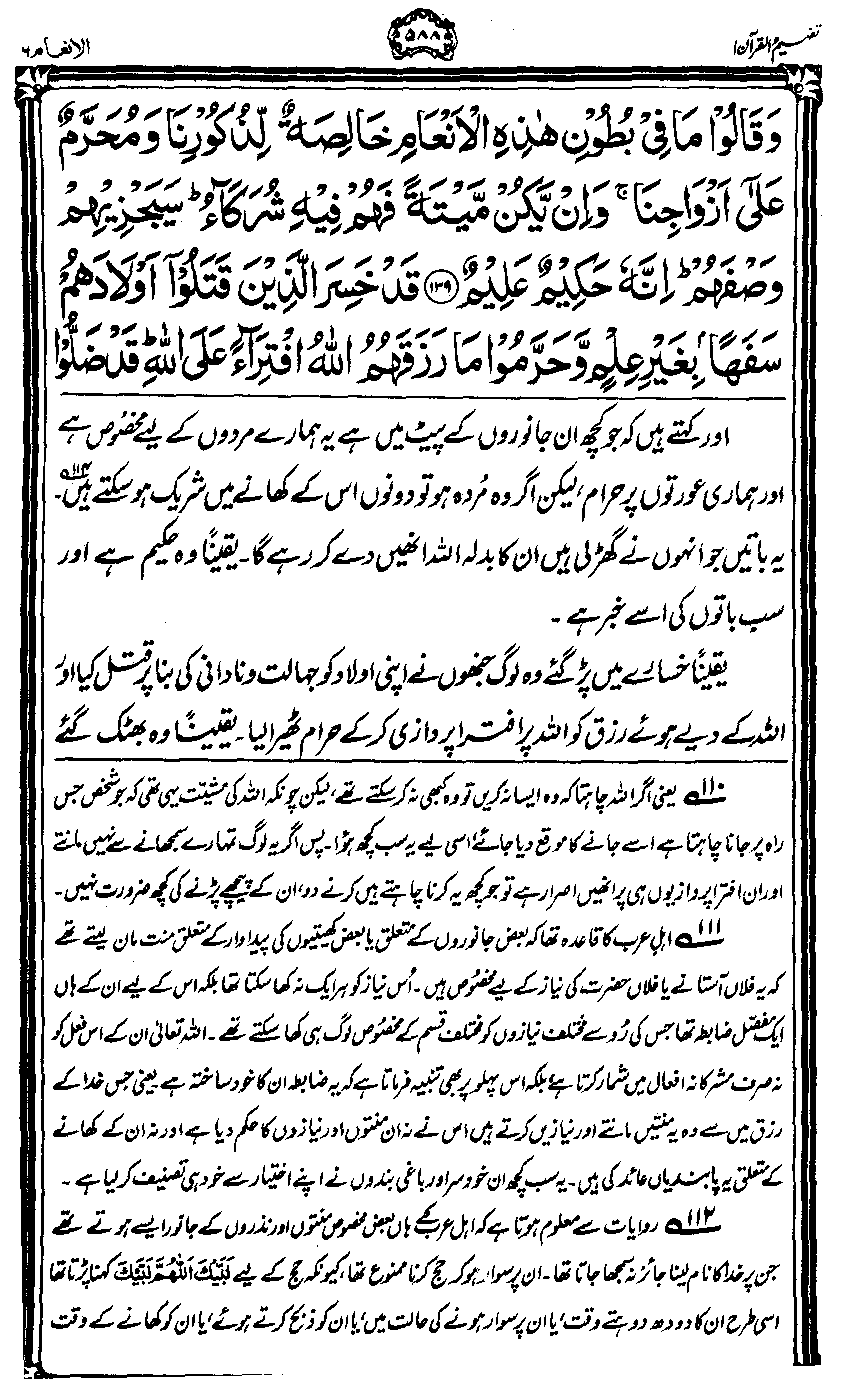 تفہیم القرآن ۱
۵۸۸
الانعام ۶
وَقَالُوْا مَا فِیْ بُطُوْنِ هٰذِهِ الْاَنْعَامِ خَالِصَةٌ لِّذُكُوْرِنَا وَمُحَرَّمٌ
عَلٰۤى اَزْوَاجِنَا ۚ وَاِنْ یَّكُنْ مَّیْتَةً فَهُمْ فِیْهِ شُرَكَآءُ ؕ سَیَجْزِیْهِمْ
وَصْفَهُمْ ؕ اِنَّهٗ حَكِیْمٌ عَلِیْمٌ ﴿۱۳۹﴾ قَدْ خَسِرَ الَّذِیْنَ قَتَلُوْۤا اَوْلَادَهُمْ
سَفَهًۢا بِغَیْرِ عِلْمٍ وَّحَرَّمُوْا مَا رَزَقَهُمُ اللّٰهُ افْتِرَآءً عَلَى اللّٰهِ ؕ قَدْ ضَلُّوْا
اور کہتے ہیں کہ جو کچھ ان جانوروں کے پیٹ میں ہے یہ ہمارے مردوں کے لیے مخصوص ہے
اور ہماری عورتوں پر حرام، لیکن اگر وہ مُردہ ہو تو دونوں اس کے کھانے میں شریک ہو سکتے ہیں۔
یہ باتیں جو انہوں نے گھڑ لی ہیں ان کا بدلہ اللہ انھیں دے کر رہے گا۔ یقیناً وہ حکیم ہے اور
سب باتوں کی اسے خبر ہے۔
یقیناً خسارے میں پڑ گئے وہ لوگ جنھوں نے اپنی اولاد کو جہالت و نادانی کی بنا پر قتل کیا اور
اللہ کے دیے ہوئے رزق کو اللہ پر افترا پردازی کر کے حرام ٹھیرا لیا۔ یقیناً وہ بھٹک گئے
۱۱۰ یعنی اگر اللہ چاہتا کہ وہ ایسا نہ کریں تو وہ کبھی نہ کر سکتے تھے، لیکن چونکہ اللہ کی مشیّت یہی تھی کہ جو شخص جس
راہ پر جانا چاہتا ہے اسے جانے کا موقع دیا جائے، اسی لیے یہ سب کچھ ہوا۔ پس اگر یہ لوگ تمہارے سمجھانے سے نہیں مانتے
اور ان افترا پردازیوں ہی پر انھیں اصرار ہے تو جو کچھ یہ کرنا چاہتے ہیں کرنے دو، ان کے پیچھے پڑنے کی کچھ ضرورت نہیں۔
۱۱۱ اہلِ عرب کا قاعدہ تھا کہ بعض جانوروں کے متعلق یا بعض کھیتیوں کی پیداوار کے متعلق منت مان لیتے تھے
کہ یہ فلاں آستانے یا فلاں حضرت کی نیاز کے لیے مخصوص ہیں۔ اُس نیاز کو ہر ایک نہ کھا سکتا تھا بلکہ اس کے لیے ان کے ہاں
ایک مفصّل ضابطہ تھا جس کی رُو سے مختلف نیازوں کو مختلف قسم کے مخصوص لوگ ہی کھا سکتے تھے۔ اللہ تعالیٰ ان کے اس فعل کو
نہ صرف مشرکانہ افعال میں شمار کرتا ہے، بلکہ اس پہلو پر بھی تنبیہ فرماتا ہے کہ یہ ضابطہ ان کا خود ساختہ ہے یعنی جس خدا کے
رزق میں سے وہ یہ منتیں مانتے اور نیازیں کرتے ہیں اس نے نہ ان منتوں اور نیازوں کا حکم دیا ہے اور نہ ان کے کھانے
کے متعلق یہ پابندیاں عائد کی ہیں۔ یہ سب کچھ ان خود سر اور باغی بندوں نے اپنے اختیار سے خود ہی تصنیف کر لیا ہے۔
۱۱۲ روایات سے معلوم ہوتا ہے کہ اہل عرب کے ہاں بعض مخصوص منتوں اور نذروں کے جانور ایسے ہوتے تھے
جن پر خدا کا نام لینا جائز نہ سمجھا جاتا تھا۔ ان پر سوار ہو کر حج کرنا ممنوع تھا، کیونکہ حج کے لیے لَبَّیْكَ اَللّٰهُمَّ لَبَّیْكَ کہنا پڑتا تھا
اسی طرح ان کا دودھ دوہتے وقت، یا ان پر سوار ہونے کی حالت میں، یا ان کو ذبح کرتے ہوئے، یا ان کو کھانے کے وقت